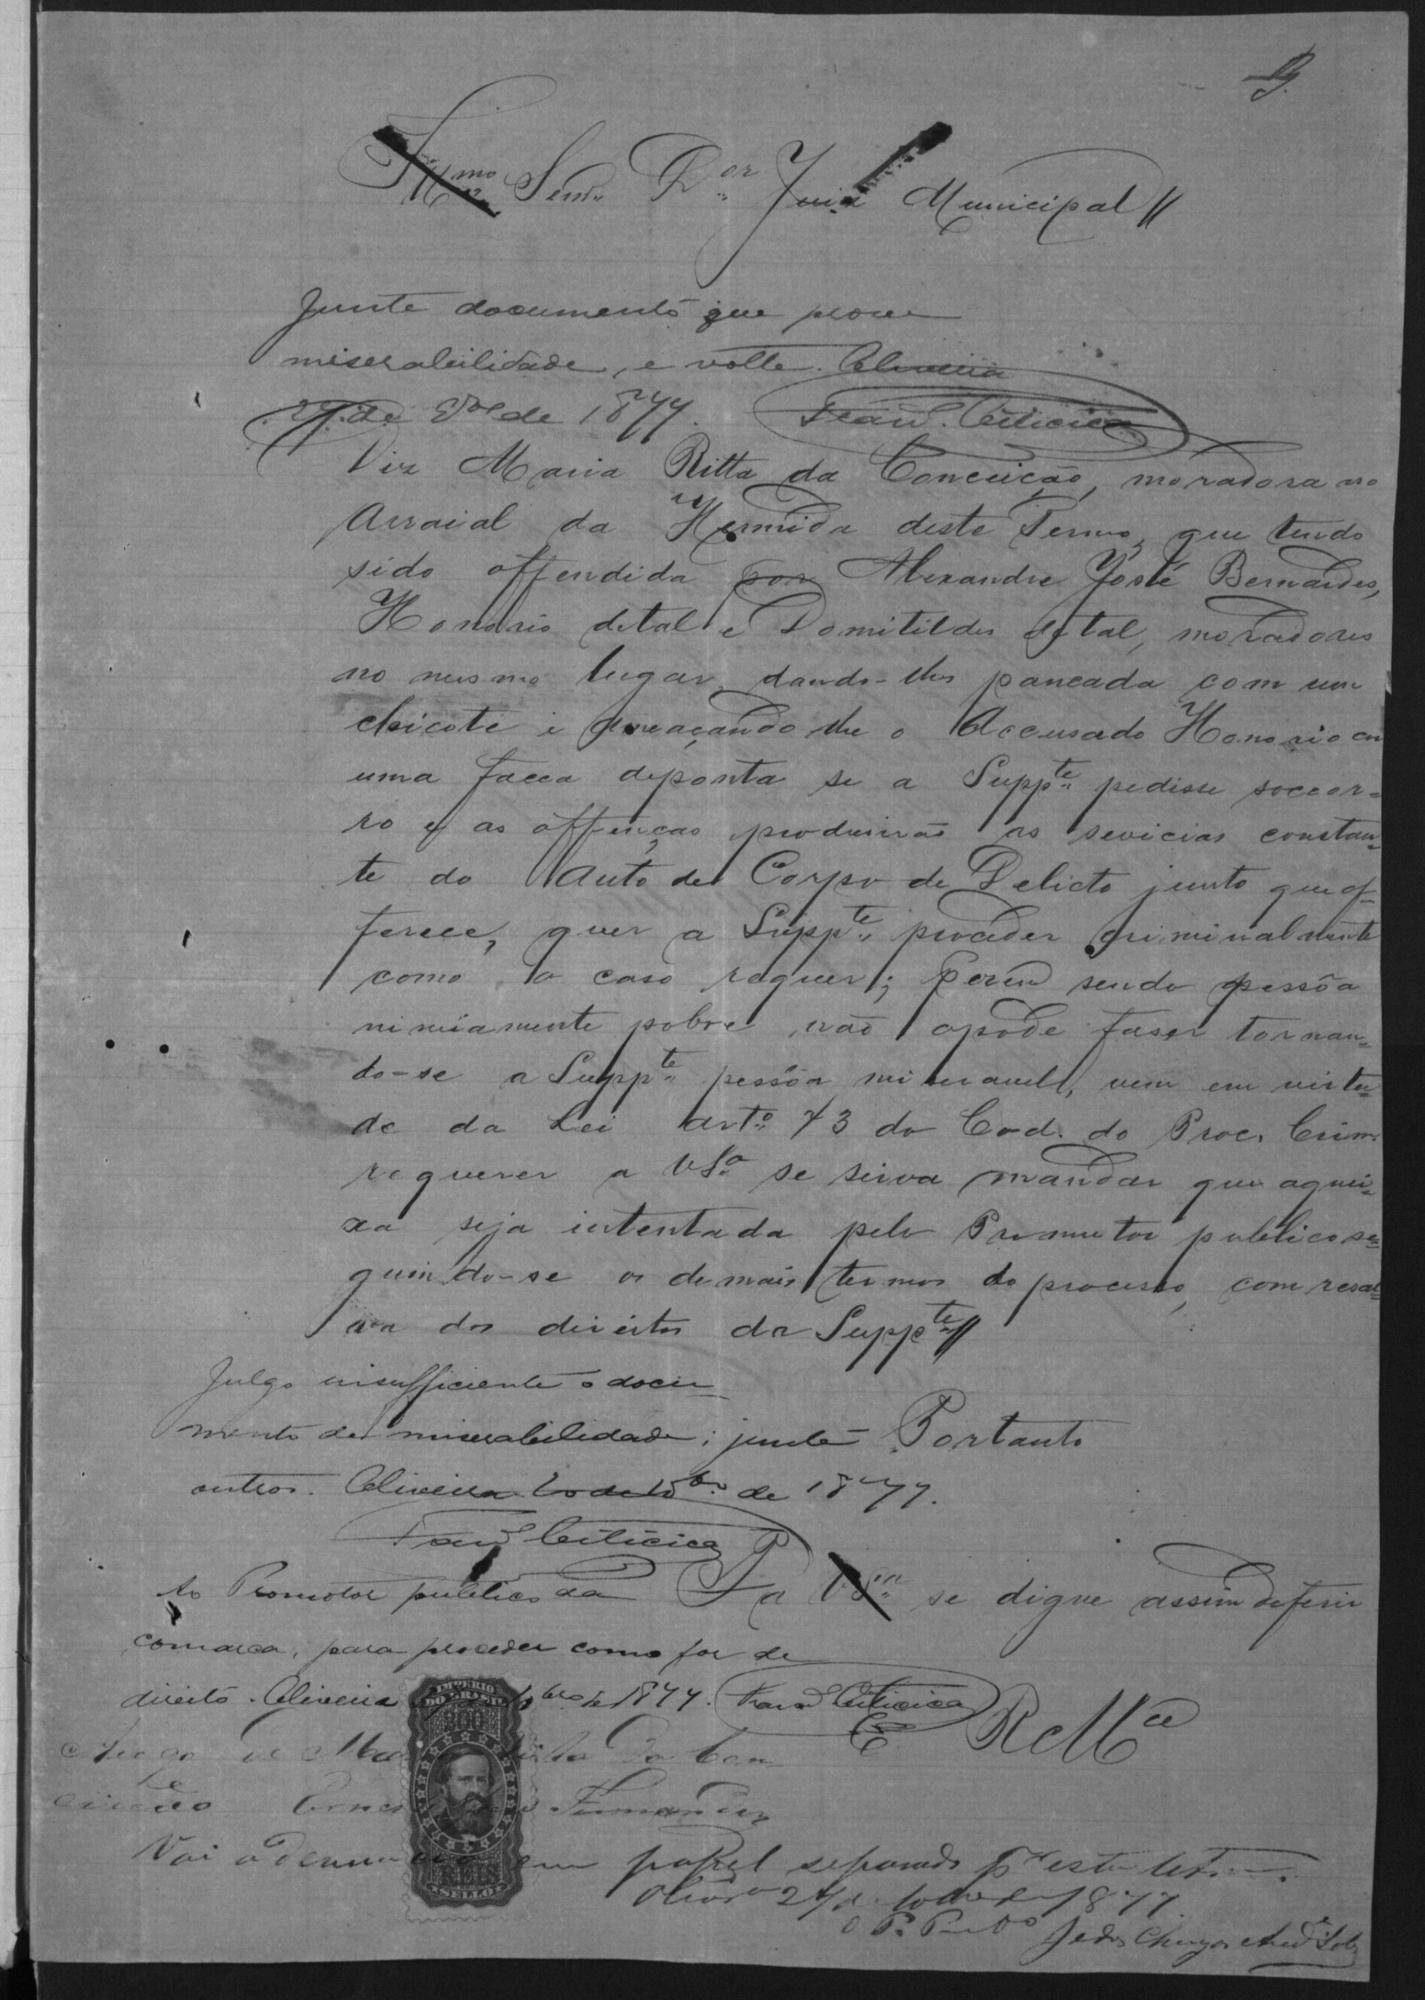 Illmo Senr Dor Juiz Municipal //
Junte documento que prove
miserabilidade, e volte. Oliveira
de 1877.
Diz Maria Ritta da Conceição, moradora no
Arraial da Hermida deste Termo, que tendo
sido offendida por Alexandre José Bernardes,
Honorio de tal e Domitildes de tal, moradores
no mesmo lugar, dando-lhes pancada com um
chicote e ameaçando lhe o Accusado Honorio com
uma facca de ponta se a Suppte pedisse soccor-
ro e as offenças produsirão as sevicias constan-
te do Auto de Corpo de Delicto junto que of-
ferece, quer a Suppte proceder criminalmente
como o caso requer; porem sendo pessôa
nimiamente pobre não o pode faser tornan-
do-se a Suppte pessôa miseravel, vem em virtu-
de da Lei arto 73 do Cod. do Proc. Crim.
requerer a VSa se sirva mandar que a quei-
xa seja intentada pelo Promutor publico se-
guindo-se os demais termos do processo, com resal-
va dos direitos da Suppte //
Julgo insufficiente o docu-
mento de miserabilidade; junte Portanto
outros. Oliveira de 1877.
Ao Promotor publico da P. a VSa se digne assim deferir
comarca, para proceder como for de
direito. Oliveira de 1877. E R Mce
IMPERIO
DO BRASIL
A rogo de Maria Ritta da Con
ceição Fernandes
REIS
SELLO
Vai a denuncia em papel separado
1877.